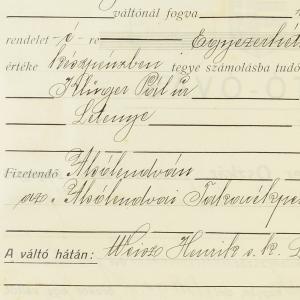 váltónál fogva
rendelet -é- re Egyezerhét
értéke készpénzben tegye számolásba tudó
Klinger Pál úr
Letenye
Fizetendő Alsólendván
az "Alsólendvai Takarékpé
A váltó hátán: Weisz Henrik s. k.